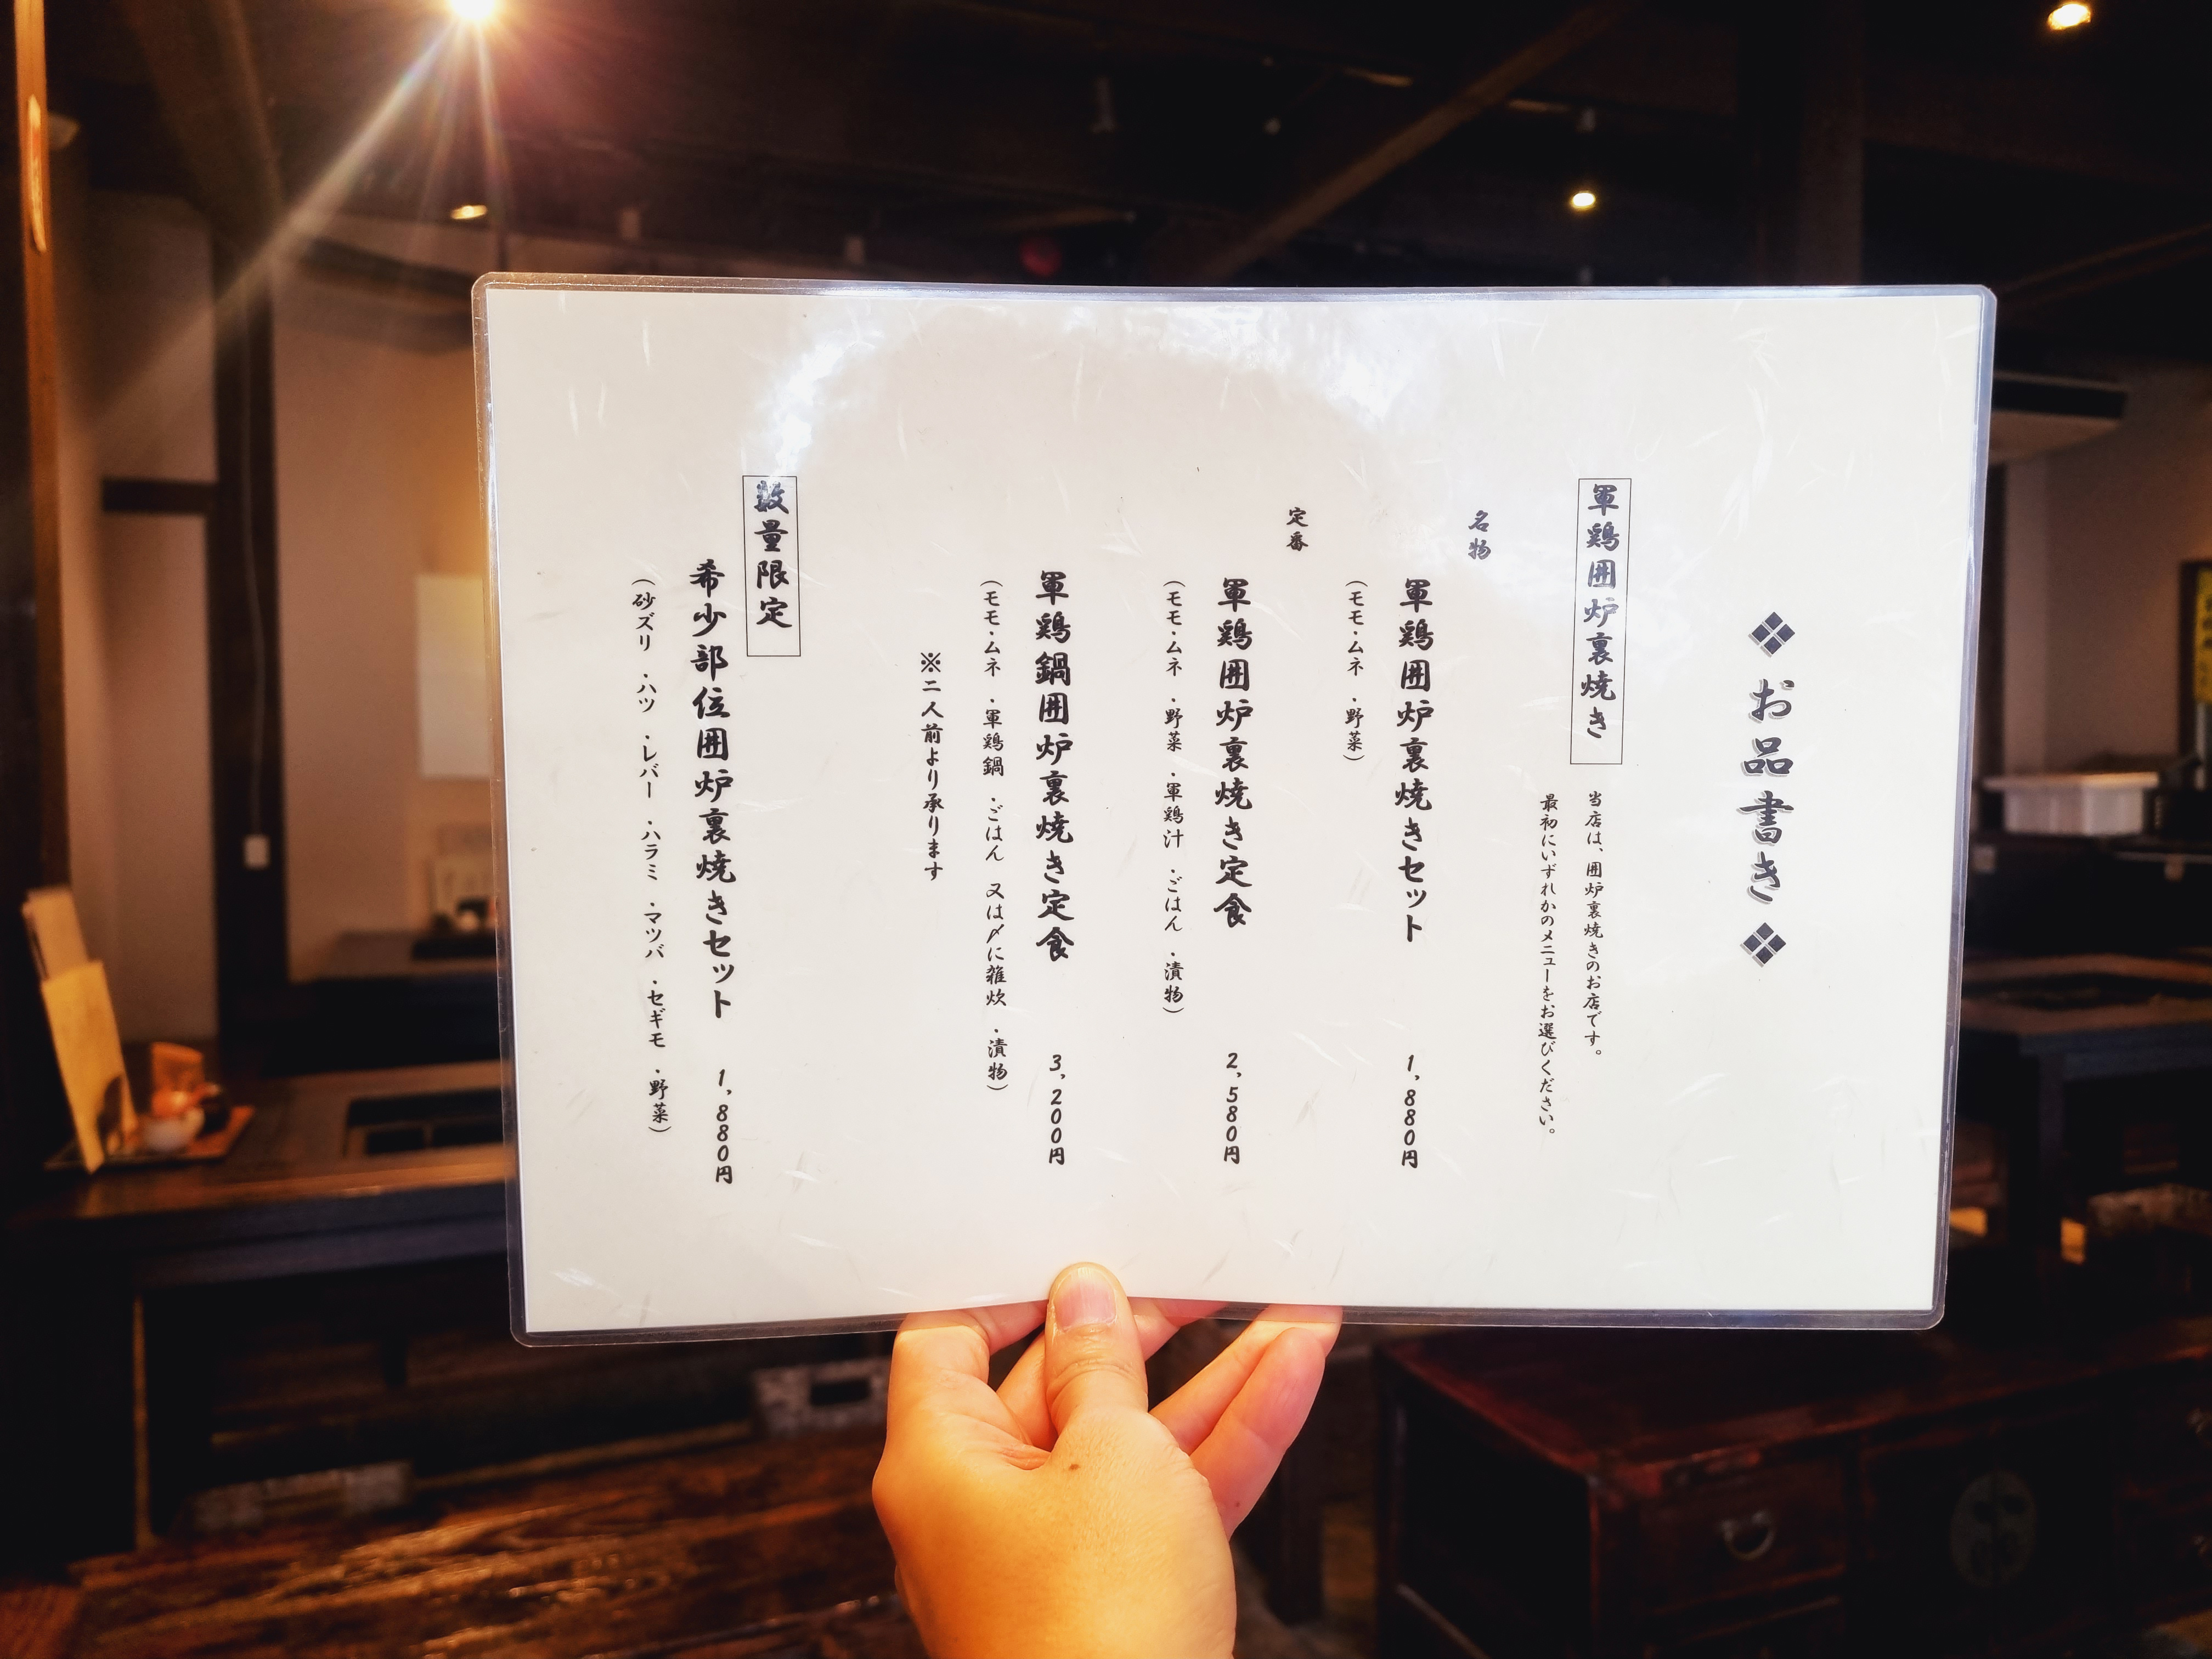 ❖お品書き❖
軍鶏囲炉裏焼き
当店は、囲炉裏焼きのお店です。
最初にいずれかのメニューをお選びください。
名物
軍鶏囲炉裏焼きセット 1,880円
(モモ・ムネ・野菜)
定番
軍鶏囲炉裏焼き定食 2,580円
(モモ・ムネ・野菜・軍鶏汁・ごはん・漬物)
軍鶏鍋囲炉裏焼き定食 3,200円
(モモ・ムネ・軍鶏鍋・ごはん 又は〆に雑炊・漬物)
※二人前より承ります
数量限定
希少部位囲炉裏焼きセット 1,880円
(砂ズリ・ハツ・レバー・ハラミ・マツバ・セギモ・野菜)